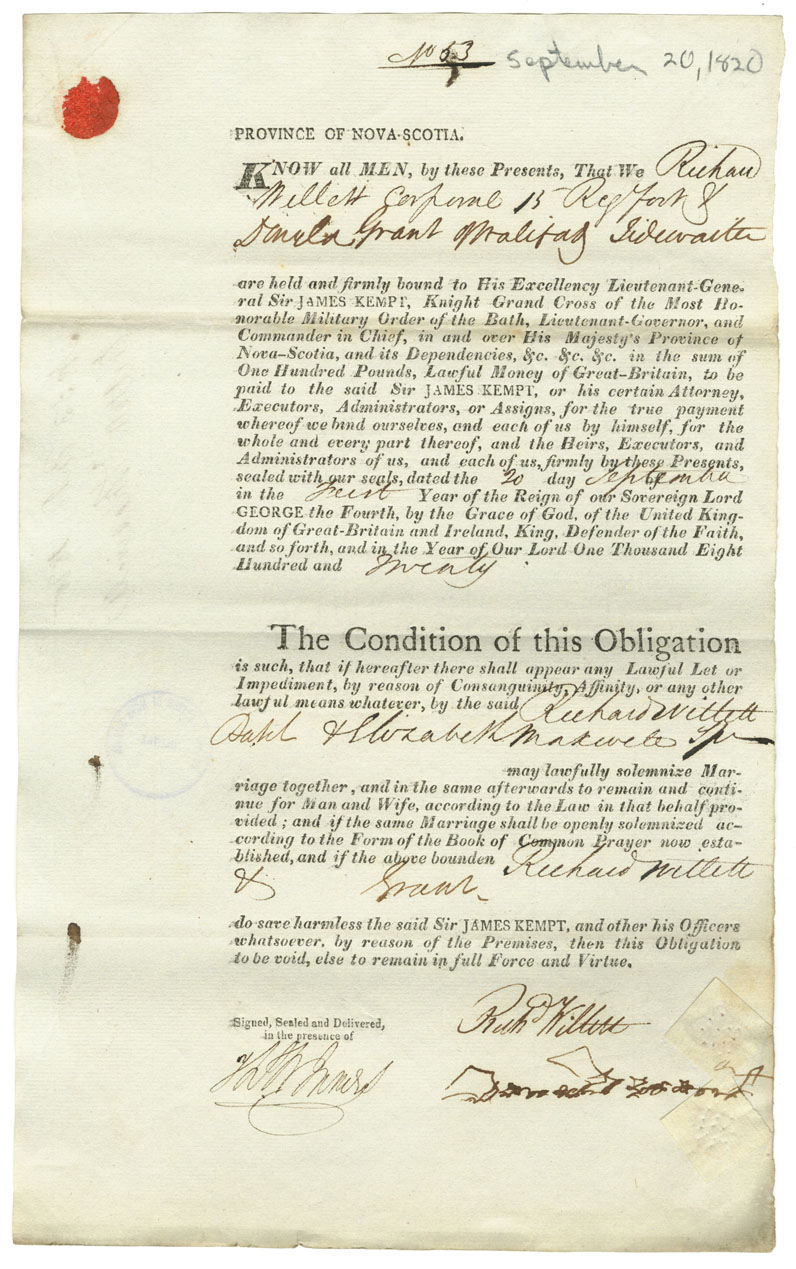 No 53 September 20, 1820
PROVINCE OF NOVA-SCOTIA.
KNOW all MEN, by these Presents, That We Richard
Willett Corporal 15 Reg Foot &
Donald Grant of Halifax Tidewaiter
are held and firmly bound to His Excellency Lieutenant-Gene-
ral Sir JAMES KEMPT, Knight Grand Cross of the Most Ho-
norable Military Order of the Bath, Lieutenant-Governor, and
Commander in Chief, in and over His Majesty's Province of
Nova-Scotia, and its Dependencies, &c. &c. &c. in the sum of
One Hundred Pounds, Lawful Money of Great-Britain, to be
paid to the said Sir JAMES KEMPT, or his certain Attorney,
Executors, Administrators, or Assigns, for the true payment
whereof we bind ourselves, and each of us by himself, for the
whole and every part thereof, and the Heirs, Executors, and
Administrators of us, and each of us, firmly by these Presents,
sealed with our seals, dated the 20 day of September
in the First Year of the Reign of our Sovereign Lord
GEORGE the Fourth, by the Grace of God, of the United King-
dom of Great-Britain and Ireland, King, Defender of the Faith,
and so forth, and in the Year of Our Lord One Thousand Eight
Hundred and Twenty
The Condition of this Obligation
is such, that if hereafter there shall appear any Lawful Let or
Impediment, by reason of Consanguinity, Affinity, or any other
lawful means whatever, by the said Richard Willett
& Elizabeth Spr
may lawfully solemnize Mar-
riage together, and in the same afterwards to remain and conti-
nue for Man and Wife, according to the Law in that behalf pro-
vided; and if the same Marriage shall be openly solemnized ac-
cording to the Form of the Book of Common Prayer now esta-
blished, and if the above bounden Richard Willett
& Grant
do save harmless the said Sir JAMES KEMPT, and other his Officers
whatsoever, by reason of the Premises, then this Obligation
to be void, else to remain in full Force and Virtue.
Signed, Sealed and Delivered,
in the presence of
Richd Willett